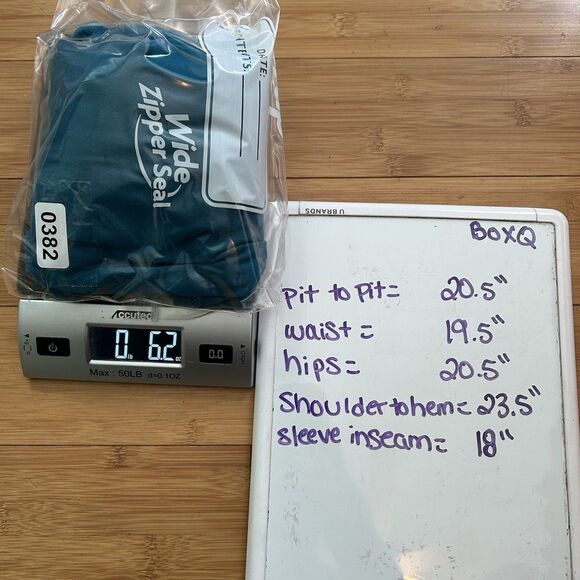 DATE:
Wide
Zipper Seal
0382
Accutec
0 lb 6.2 oz
0.0
Max : 50LB d=0.1OZ
U BRANDS
BOXQ
pit to pit= 20.5"
waist = 19.5"
hips = 20.5"
Shoulder to hem = 23.5"
sleeve inseam = 18"